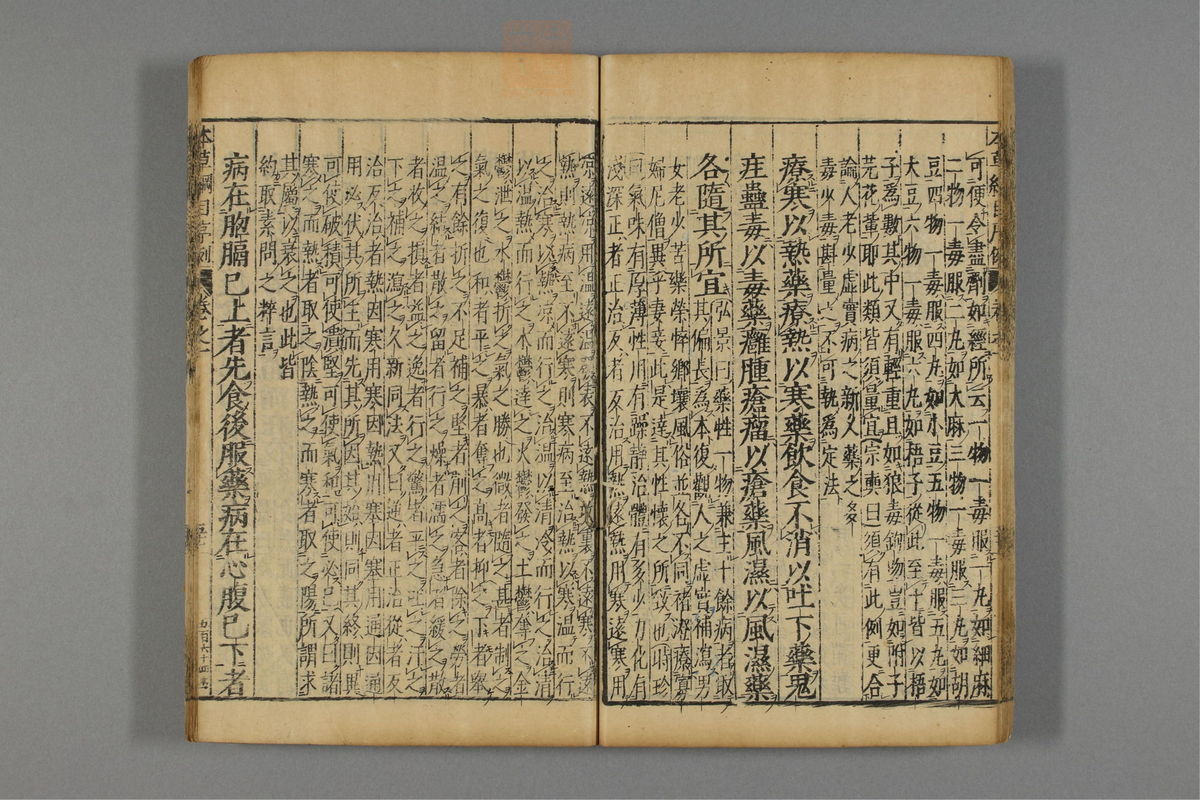 可便令盡劑如經所云一物一毒服一丸如細麻
二物一毒服二丸如大麻三物一毒服三丸如胡
豆四物一毒服四丸如小豆五物一毒服五丸如
大豆六物一毒服六丸如梧子從此至十皆以梧
子爲數其中又有輕重且如狼毒鉤吻豈如附子
芫花輩耶此類皆須量宜宗奭曰須有此例更合
論人老少虛實病之新久藥之多
毒少毒斟量之不可執爲定法
療寒以熱藥療熱以寒藥飲食不消以吐下藥鬼
疰蠱毒以毒藥癰腫瘡瘤以瘡藥風濕以風濕藥
各隨其所宜弘景曰藥性一物兼主十餘病者取
其偏長爲本復觀人之虛實補瀉男
女老少苦樂榮悴鄉壤風俗並各不同褚澄療寡
婦尼僧異乎妻妾此是達其性懷之所致也時珍
曰氣味有厚薄性用有躁靜治體有多少力化有
淺深正者正治反者反治用熱遠熱用寒遠寒用
涼遠涼用溫遠溫發表不遠熱攻裏不遠寒不遠
熱則熱病至不遠寒則寒病至治熱以寒溫而行
之治寒以熱涼而行之治溫以清冷而行之治清
以溫熱而行之木鬱達之火鬱發之土鬱奪之金
鬱泄之水鬱折之氣之勝也微者隨之甚者制之
氣之復也和者平之暴者奪之高者抑之下者舉
之有餘折之不足補之堅者削之客者除之勞者
溫之結者散之留者行之燥者濡之急者緩之散
者收之損者益之逸者行之驚者平之吐之汗之
下之補之瀉之久新同法又曰逆者正治從者反
治反治者熱因寒用寒因熱用塞因塞用通因通
用必伏其所主而先其所因其始則同其終則異
可使破積可使潰堅可使氣和可使必已又曰諸
寒之而熱者取之陰熱之而寒者取之陽所謂求
其屬以衰之也此皆
約取素問之粹言
病在胸膈已上者先食後服藥病在心腹已下者